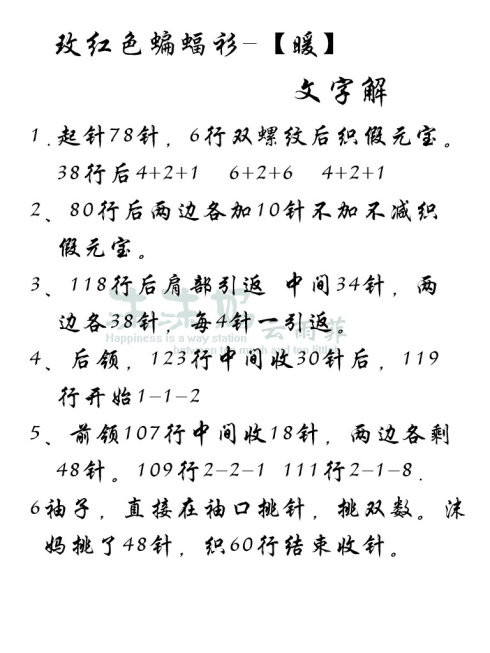 玫红色蝙蝠衫-【暖】
文字解
1.起针78针，6行双螺纹后织假元宝。
38行后4+2+1 6+2+6 4+2+1
2、80行后两边各加10针不加不减织
假元宝。
3、118行后肩部引返 中间34针，两
边各38针，每4针一引返。
Happiness is a way station
云雨菲
4、后领，123行中间收30针后，119
行开始1-1-2
5、前领107行中间收18针，两边各剩
48针。109行2-2-1 111行2-1-8.
6袖子，直接在袖口挑针，挑双数。沫
妈挑了48针，织60行结束收针。